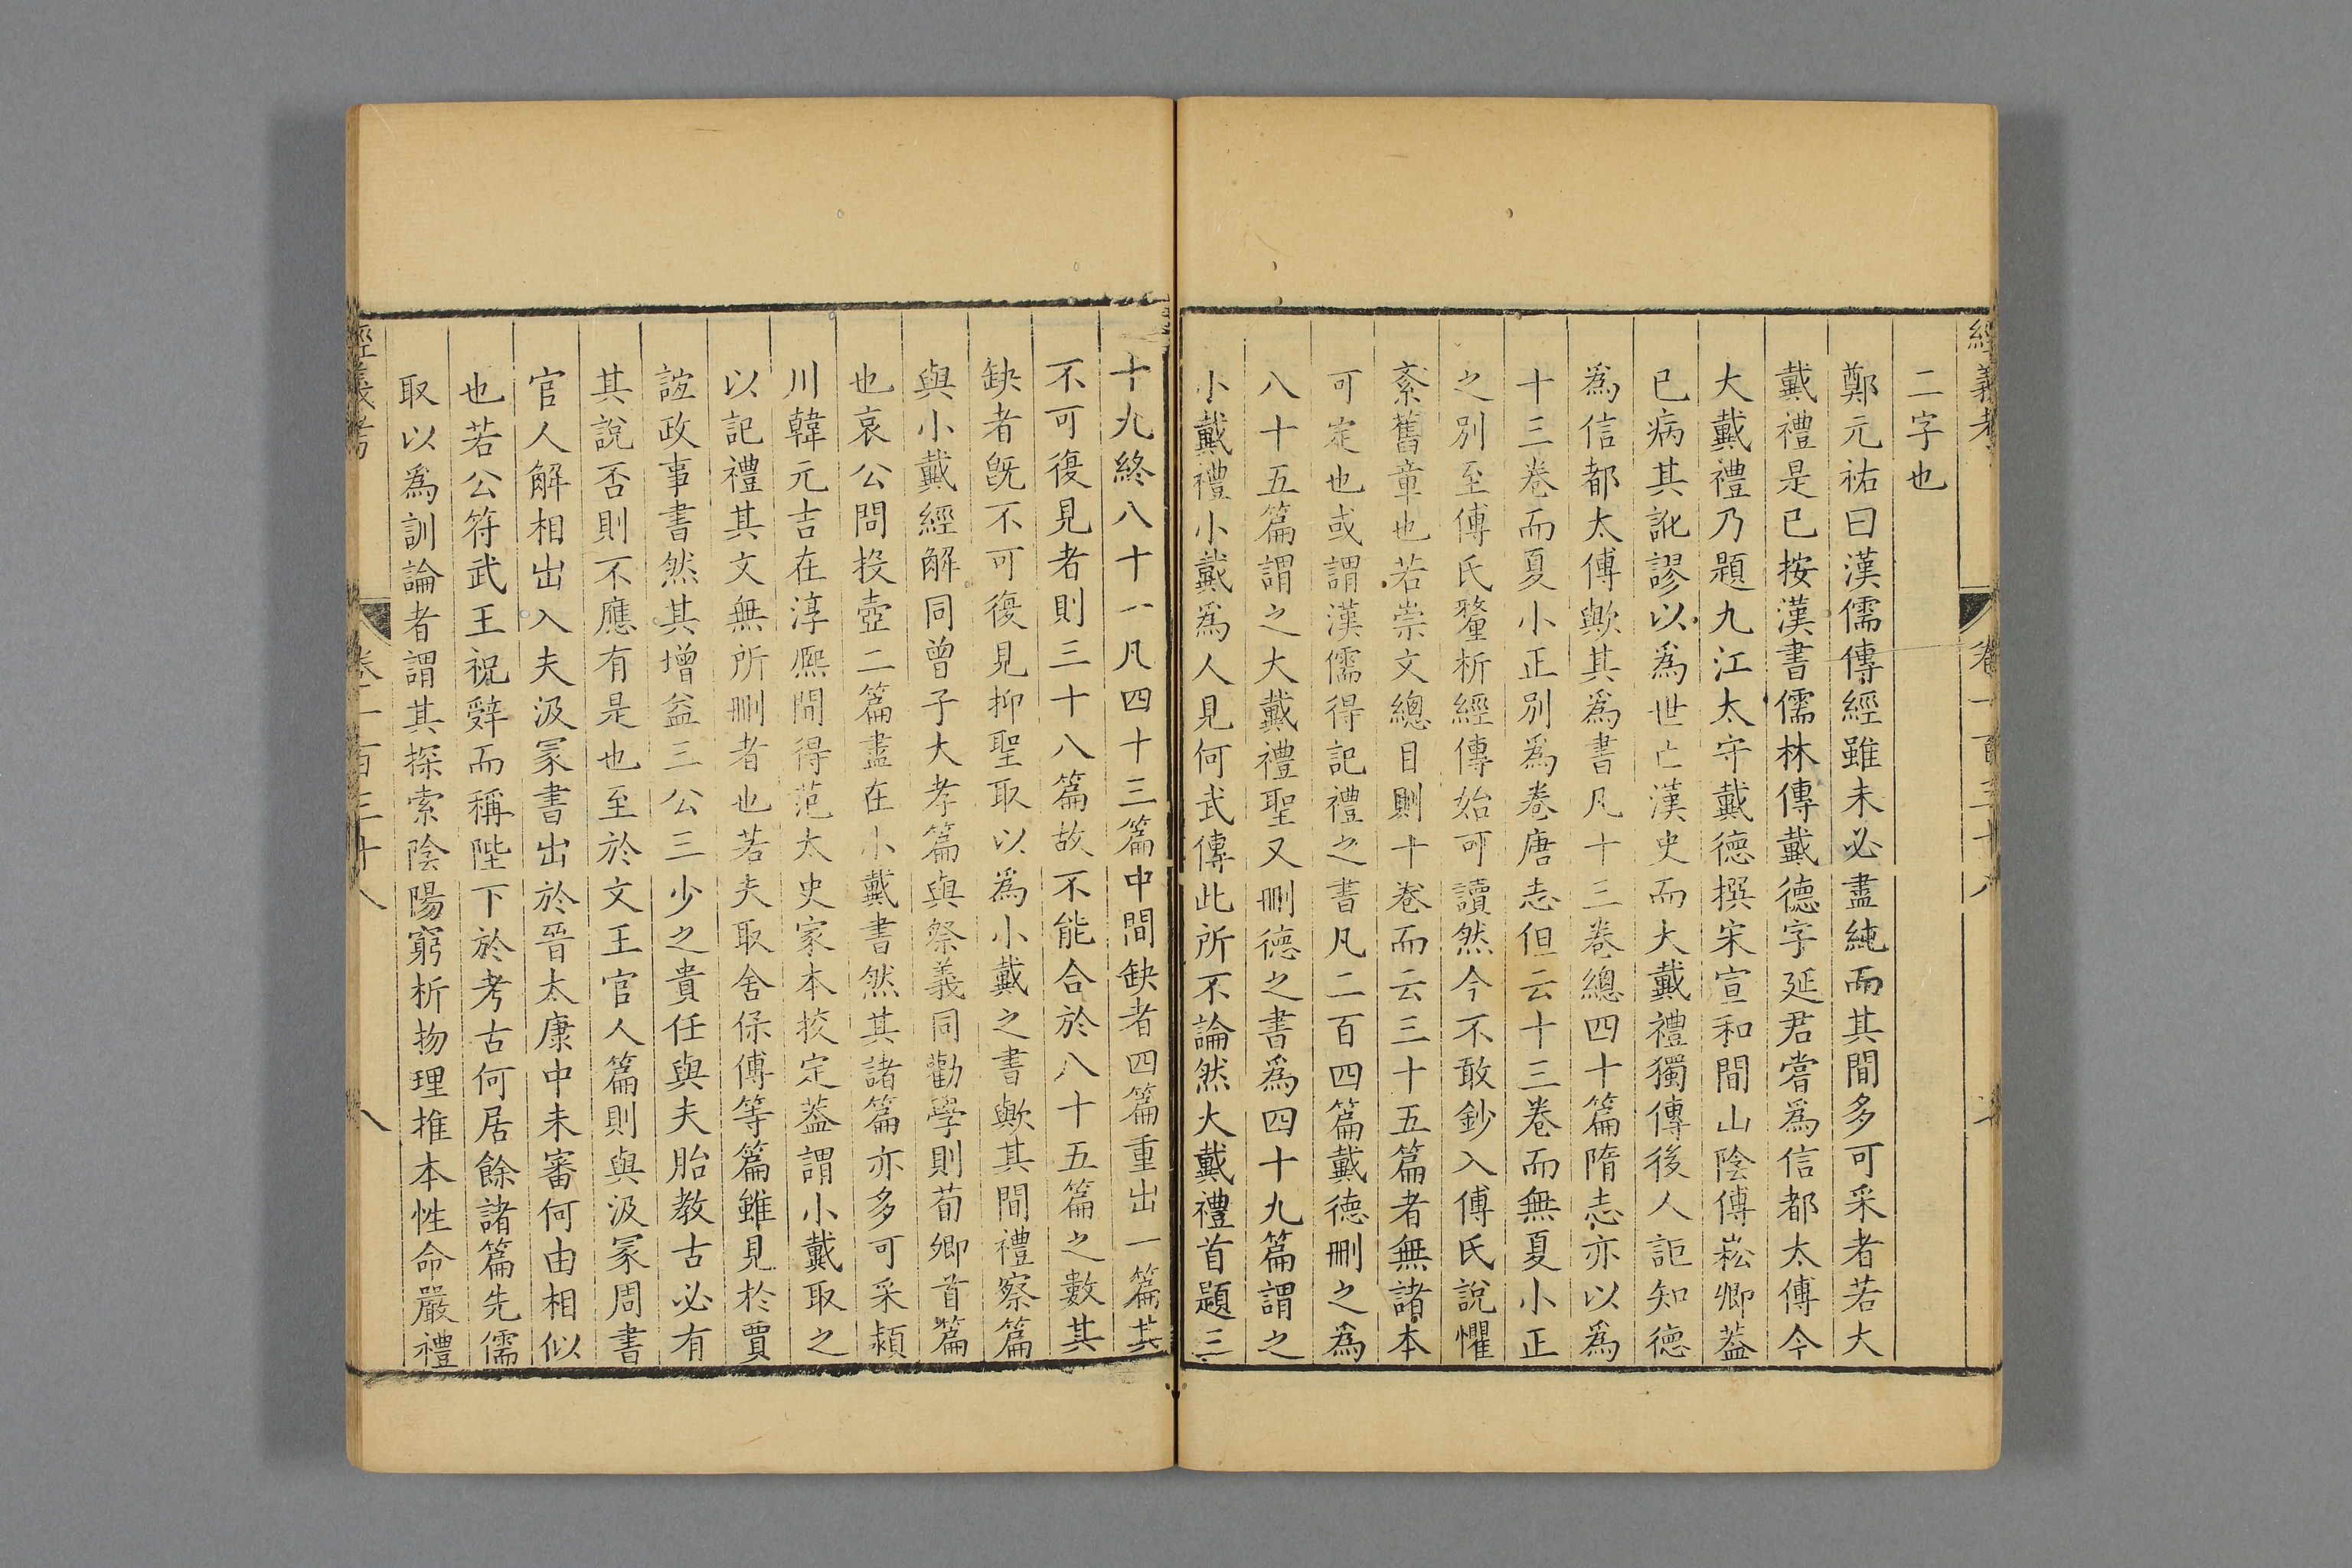 經義考
卷一百三十八
二字也
鄭元祐曰漢儒傳經雖未必盡純而其間多可采者若大
戴禮是已按漢書儒林傳戴德字延君嘗爲信都太傅今
大戴禮乃題九江太守戴德撰宋宣和間山陰傅崧卿葢
已病其訛謬以爲世亡漢史而大戴禮獨傳後人詎知德
爲信都太傅歟其爲書凡十三卷總四十篇隋志亦以爲
十三卷而夏小正別爲卷唐志但云十三卷而無夏小正
之別至傅氏釐析經傳始可讀然今不敢鈔入傅氏說懼
紊舊章也若崇文總目則十卷而云三十五篇者無諸本
可定也或謂漢儒得記禮之書凡二百四篇戴德刪之爲
八十五篇謂之大戴禮聖又刪德之書爲四十九篇謂之
小戴禮小戴爲人見何武傳此所不論然大戴禮首題三
十九終八十一凡四十三篇中間缺者四篇重出一篇其
不可復見者則三十八篇故不能合於八十五篇之數其
缺者旣不可復見抑聖取以爲小戴之書歟其間禮察篇
與小戴經解同曾子大孝篇與祭義同勸學則荀卿首篇
也哀公問投壺二篇盡在小戴書然其諸篇亦多可采潁
川韓元吉在淳熈間得范太史家本挍定葢謂小戴取之
以記禮其文無所刪者也若夫取舍保傅等篇雖見於賈
誼政事書然其增益三公三少之貴任與夫胎教古必有
其說否則不應有是也至於文王官人篇則與汲冢周書
官人解相出入夫汲冢書出於晉太康中未審何由相似
也若公符武王祝辤而稱陛下於考古何居餘諸篇先儒
取以爲訓論者謂其探索陰陽窮析物理推本性命嚴禮
經義考
卷一百三十八
八